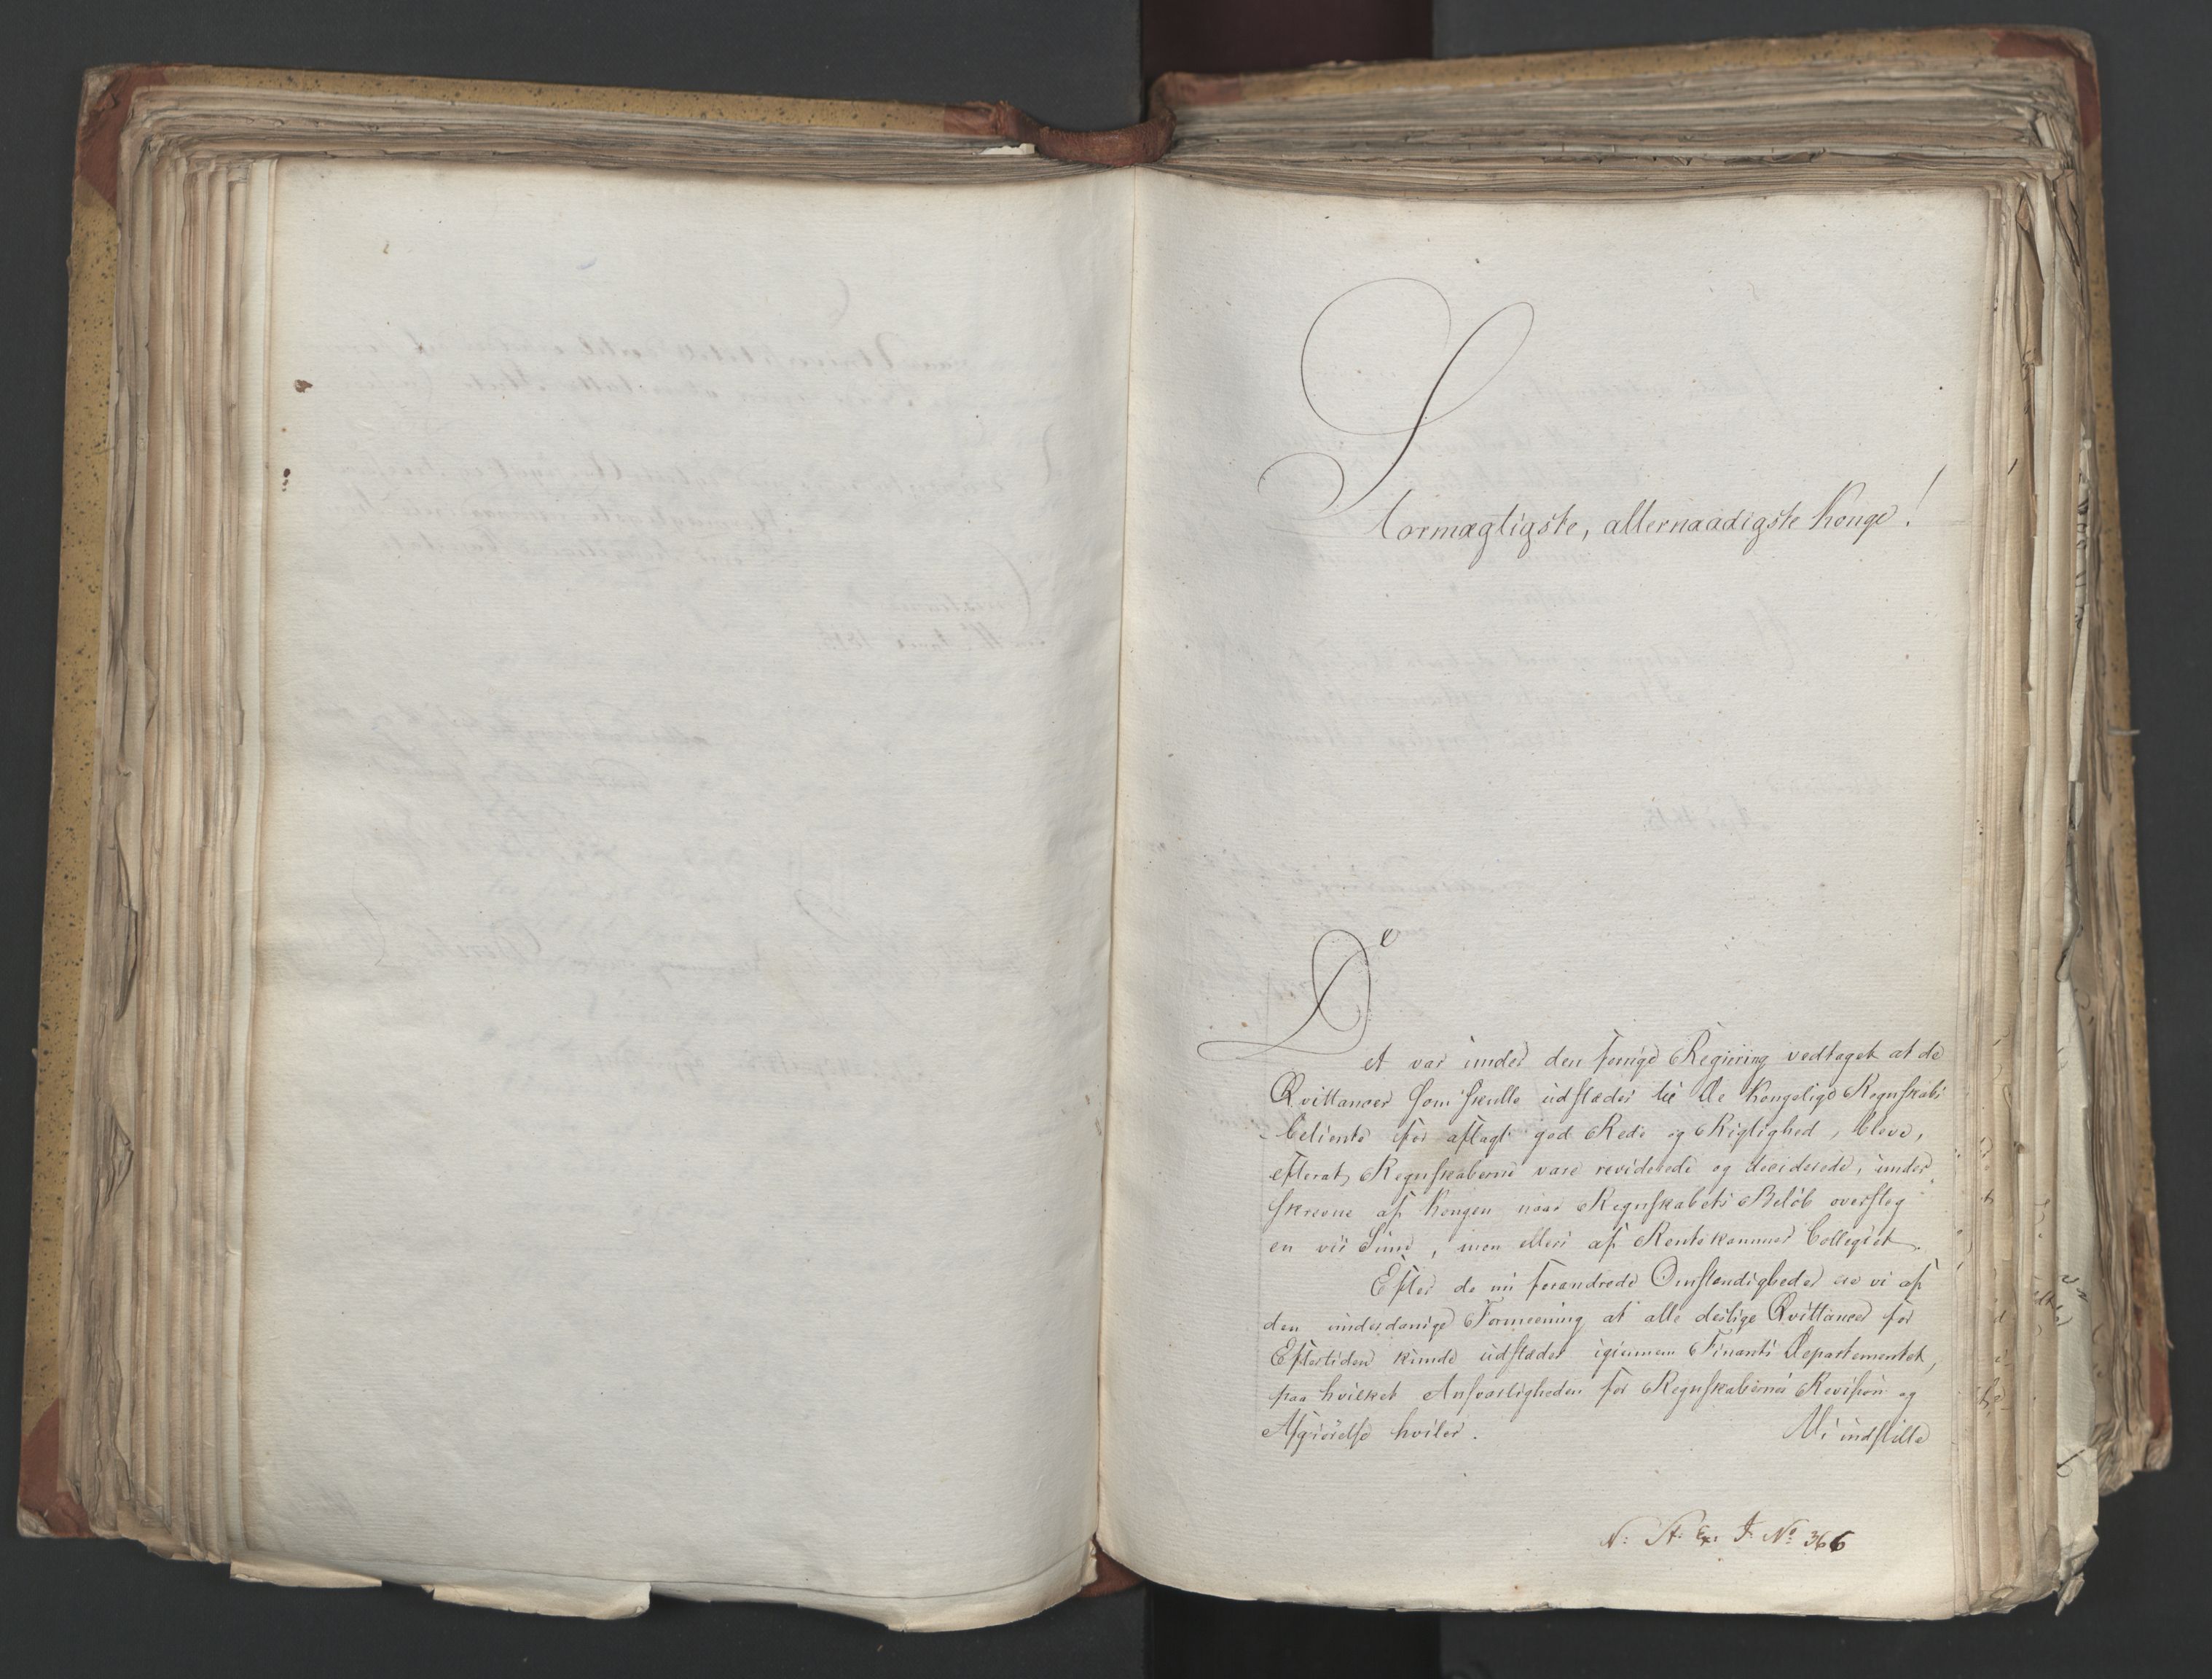 Stormægtigste, allernaadigste Konge!
Det var under den forrige Regiering vedtaget at de
Qvittancer som skulle udstædes til De Kongelige Regnskabs
betiente for aflagt god Rede og Rigtighed, bleve,
efterat Regnskaberne vare reviderede og deciderede, under
skrevne af Kongen naar Regnskabets Beløb oversteg
en vis Sum, men ellers af Rentekammer Collegiet.
Efter de nu forandrede Omstændigheder ere vi af
den underdanige Formeening at alle deslige Qvittancer for
Eftertiden kunde udstædes igiennem Finants Departementet,
paa hvilket Ansvarligheden for Regnskabernes Revision og
Afgiørelse hviler. Vi indstille
N: St: Ex: J: No 366